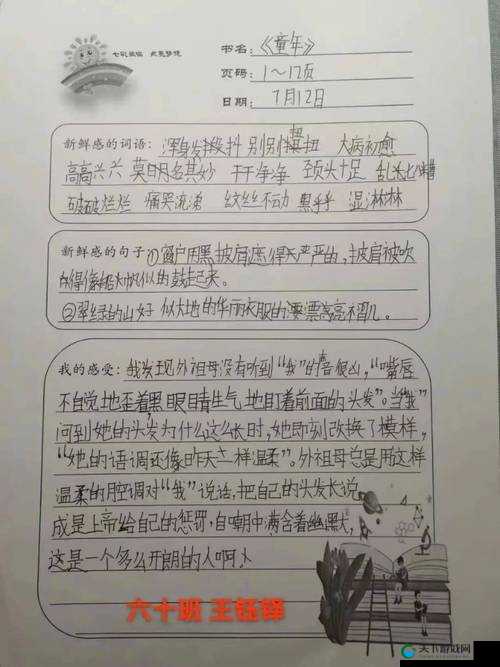 七彩班级 点亮梦想
书名:《童年》
页码:1~17页
日期:7月12日
新鲜感的词语:浑身发抖 别别扭扭 大病初愈
高高兴兴 莫明其妙 干干净净 劲头十足 乱七八糟
破破烂烂 痛哭流涕 纹丝不动 黑乎乎 湿淋淋
新鲜感的句子①窗户用黑披肩遮得严严的,披肩被吹
得像船帆似的鼓起来。
②翠绿的山好似大地的华丽衣服的
我的感受:我发现外祖母没有听到“我”的 很凶,“嘴唇
不自觉地歪着黑眼睛生气地盯着前面的头发”。当“我”
问到她的头发为什么这么长时,她即刻改换了模样,
“她的语调还像昨天一样温柔”。外祖母总是用这样
温柔的腔调对“我”说话,把自己的头发长说
成是上帝给自己的惩罚,自嘲中满含着幽默,
这是一个多么开朗的人啊
六十班 王钰铎
天下游戏网